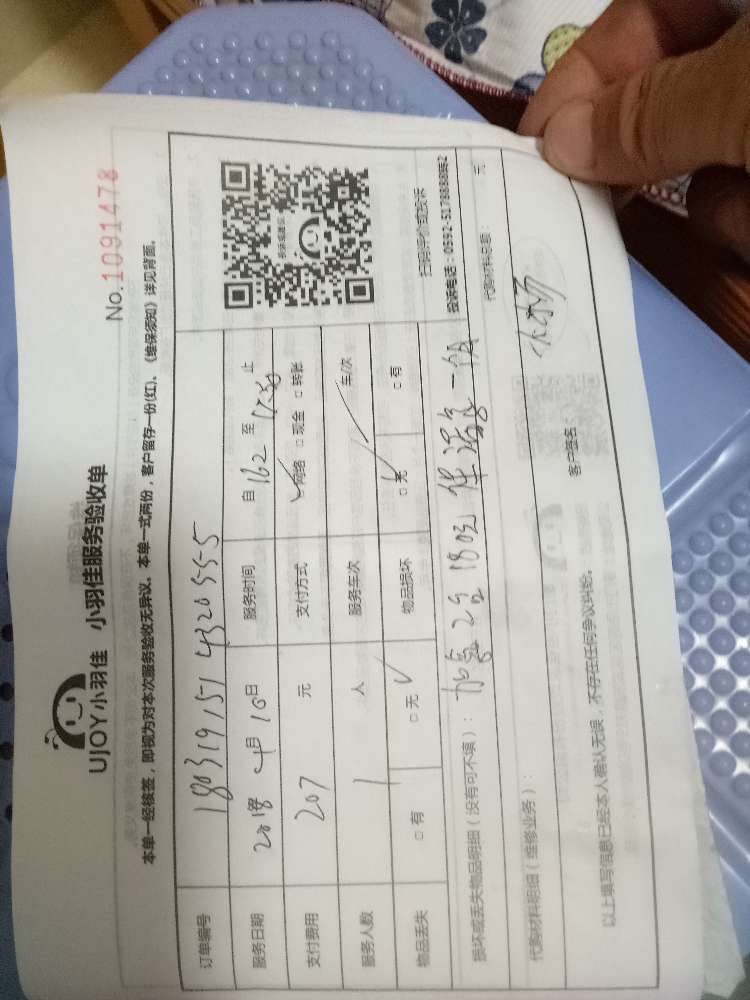 UJOY小羽佳 小羽佳服务验收单
No.1091478
本单一经核签，即视为对本次服务验收无异议。本单一式两份，客户留存一份(红)。《维保须知》详见背面。
订单编号 180319151432055-5
服务日期 2018年4月10日 服务时间 自16.2至 止
支付费用 207 元 支付方式 □网络 □现金 □转账
服务人数 1 人 服务车次 车/次
物品丢失 □有 □无 物品损坏 □无 □有
扫码评价或投诉
投诉电话：0592-5178888转2
损坏或丢失物品明细（没有可不填）：加氟2台180元
代购材料明细（维修业务）： 代购材料总额： 元
以上填写信息已经本人确认无误，不存在任何争议纠纷。 客户签名